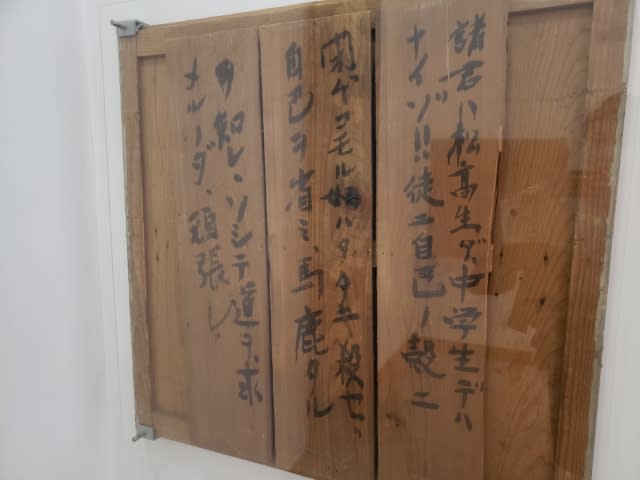 諸君ハ松高生ダ、中学生デハ
ナイゾ!!徒ニ自己ノ殻ニ
閉ヂコモル 奴ハタタキ殺セ、
自己ヲ省ミ、馬鹿タル
ヲ知レ、ソシテ道ヲ求
メルーダ、頑張レ、